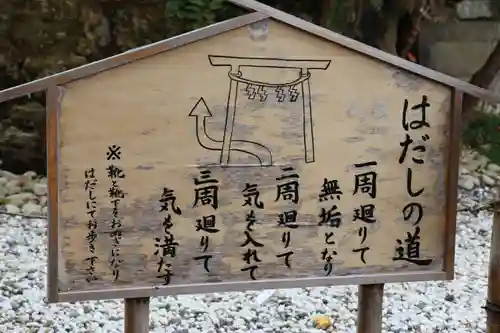 はだしの道
一周廻りて
無垢となり
二周廻りて
気を入れて
三周廻りて
気を満たす
※靴と靴下をお外ぎになり
はだしにてお歩き下さい